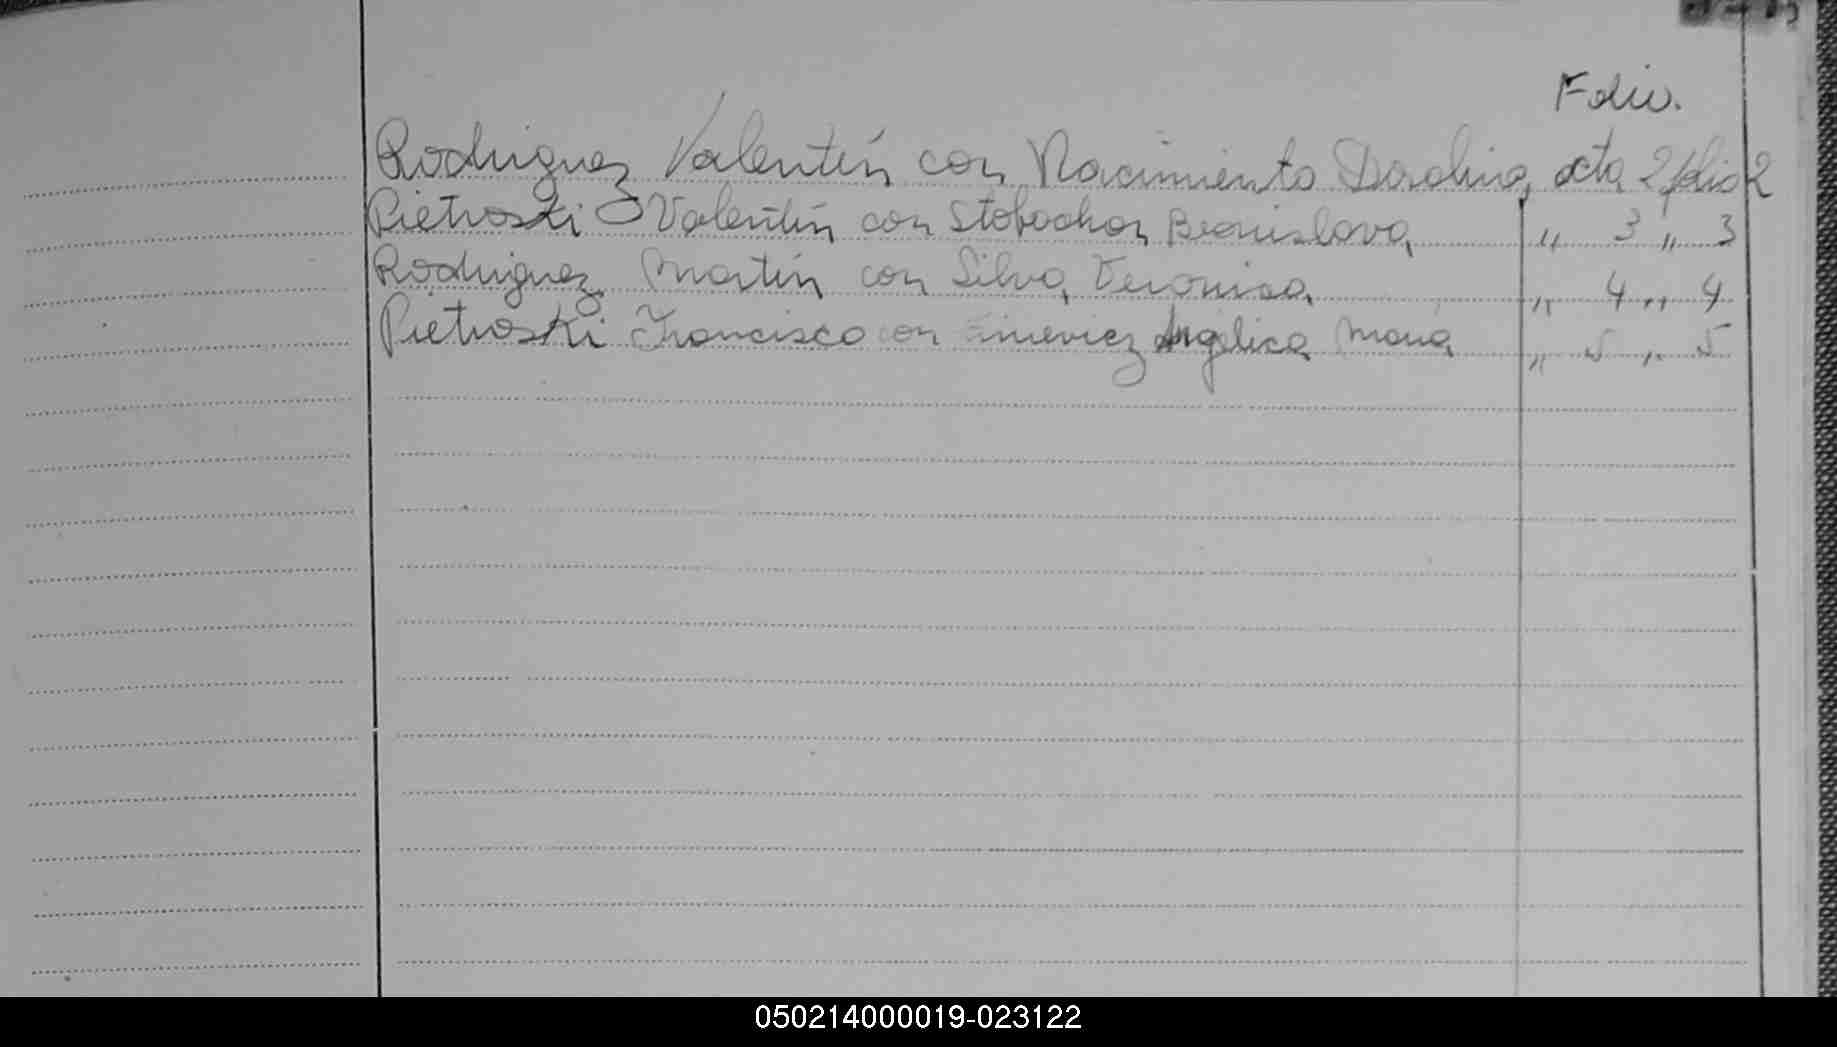 Folio.
Rodriguez Valentín con Nacimiento Dorolina, acta 2 folio 2
Pietroski Valentín con Stobochon Bronislava, „ 3 „ 3
Rodriguez Martín con Silva, Veronica, „ 4 „ 4
Pietroski Francisco con Angélica María „ 5 „ 5
050214000019-023122